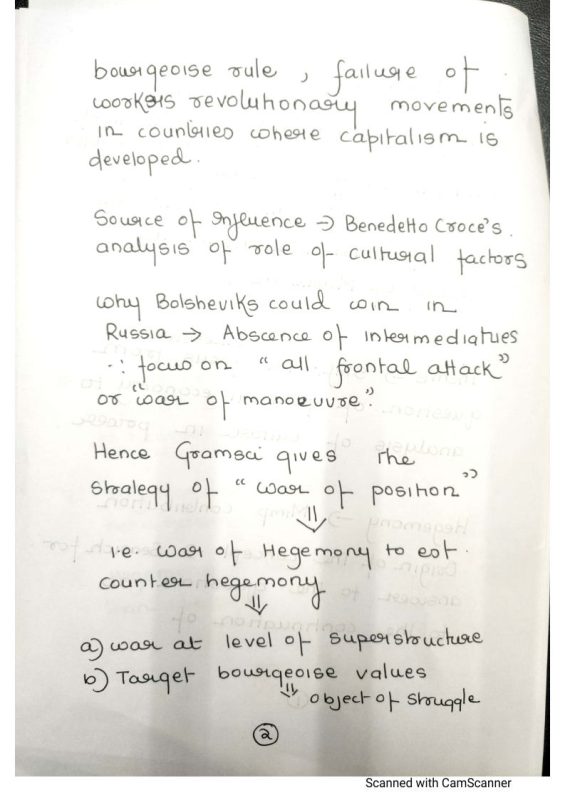 bourgeoise rule, failure of
workers revolutionary movements
in countries where capitalism is
developed.
Source of Influence → Benedetto Croce's
analysis of role of cultural factors
why Bolsheviks could win in
Russia → Abscence of intermediatries
∴ focus on "all frontal attack"
or "war of manoeuvre."
Hence Gramsci gives the
strategy of "war of position"
⇓
i.e. war of Hegemony to est.
counter hegemony
⇓
a) war at level of superstructure
b) Target bourgeoise values
⇓ object of struggle
2
Scanned with CamScanner